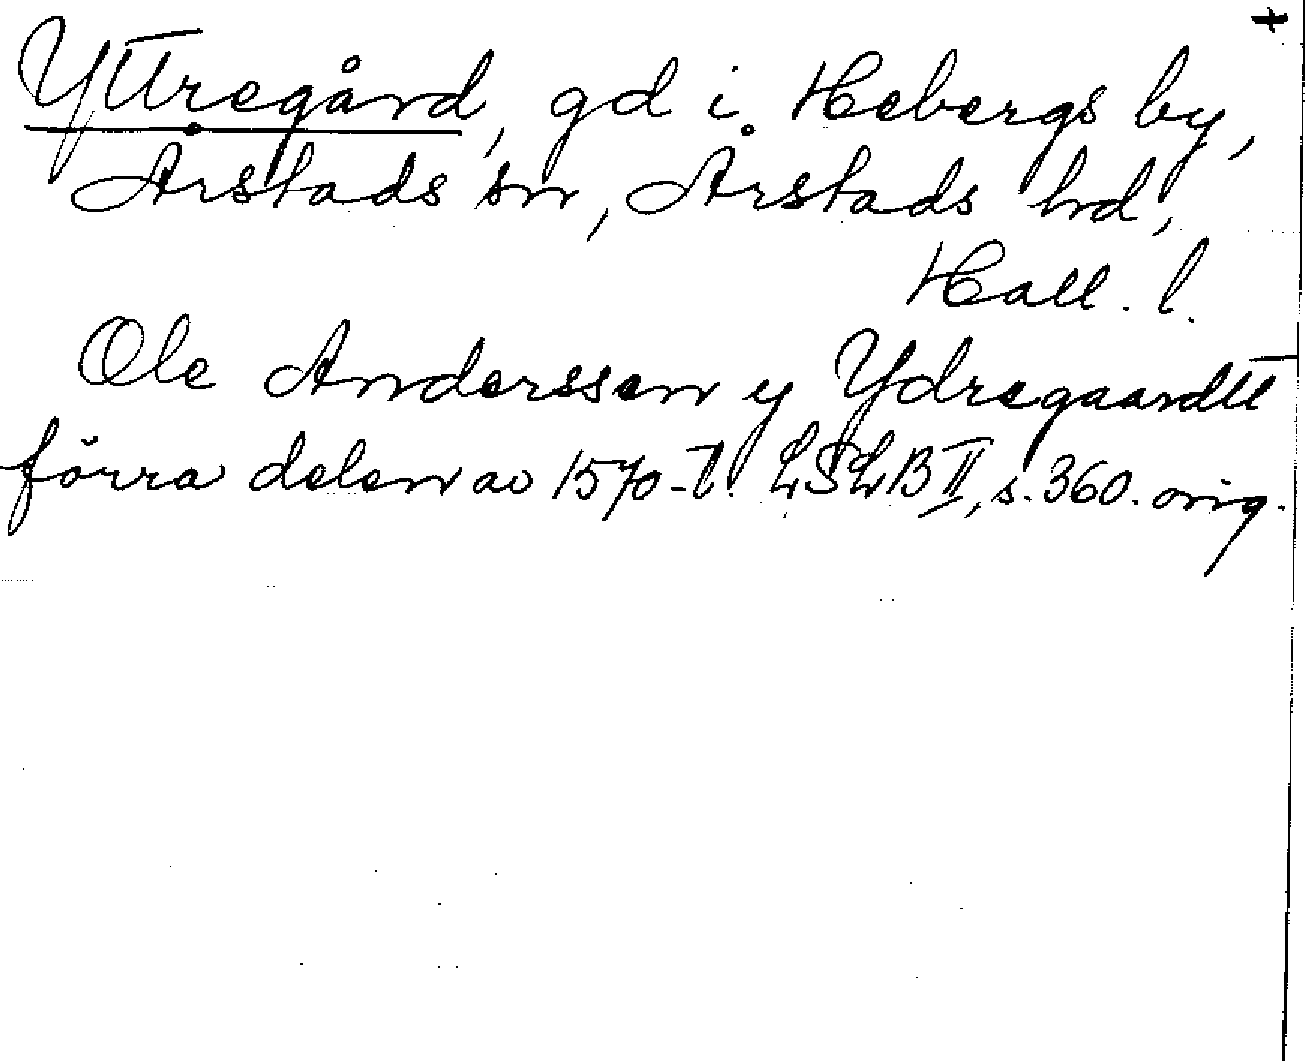 +
Yttregård, gd i Hebergs by,
Årstads sn, Årstads hd,
Hall. l.
Ole Anderssen y Ydregaardtt
förra delen av 1570-t. LSLB II, s. 360. orig.